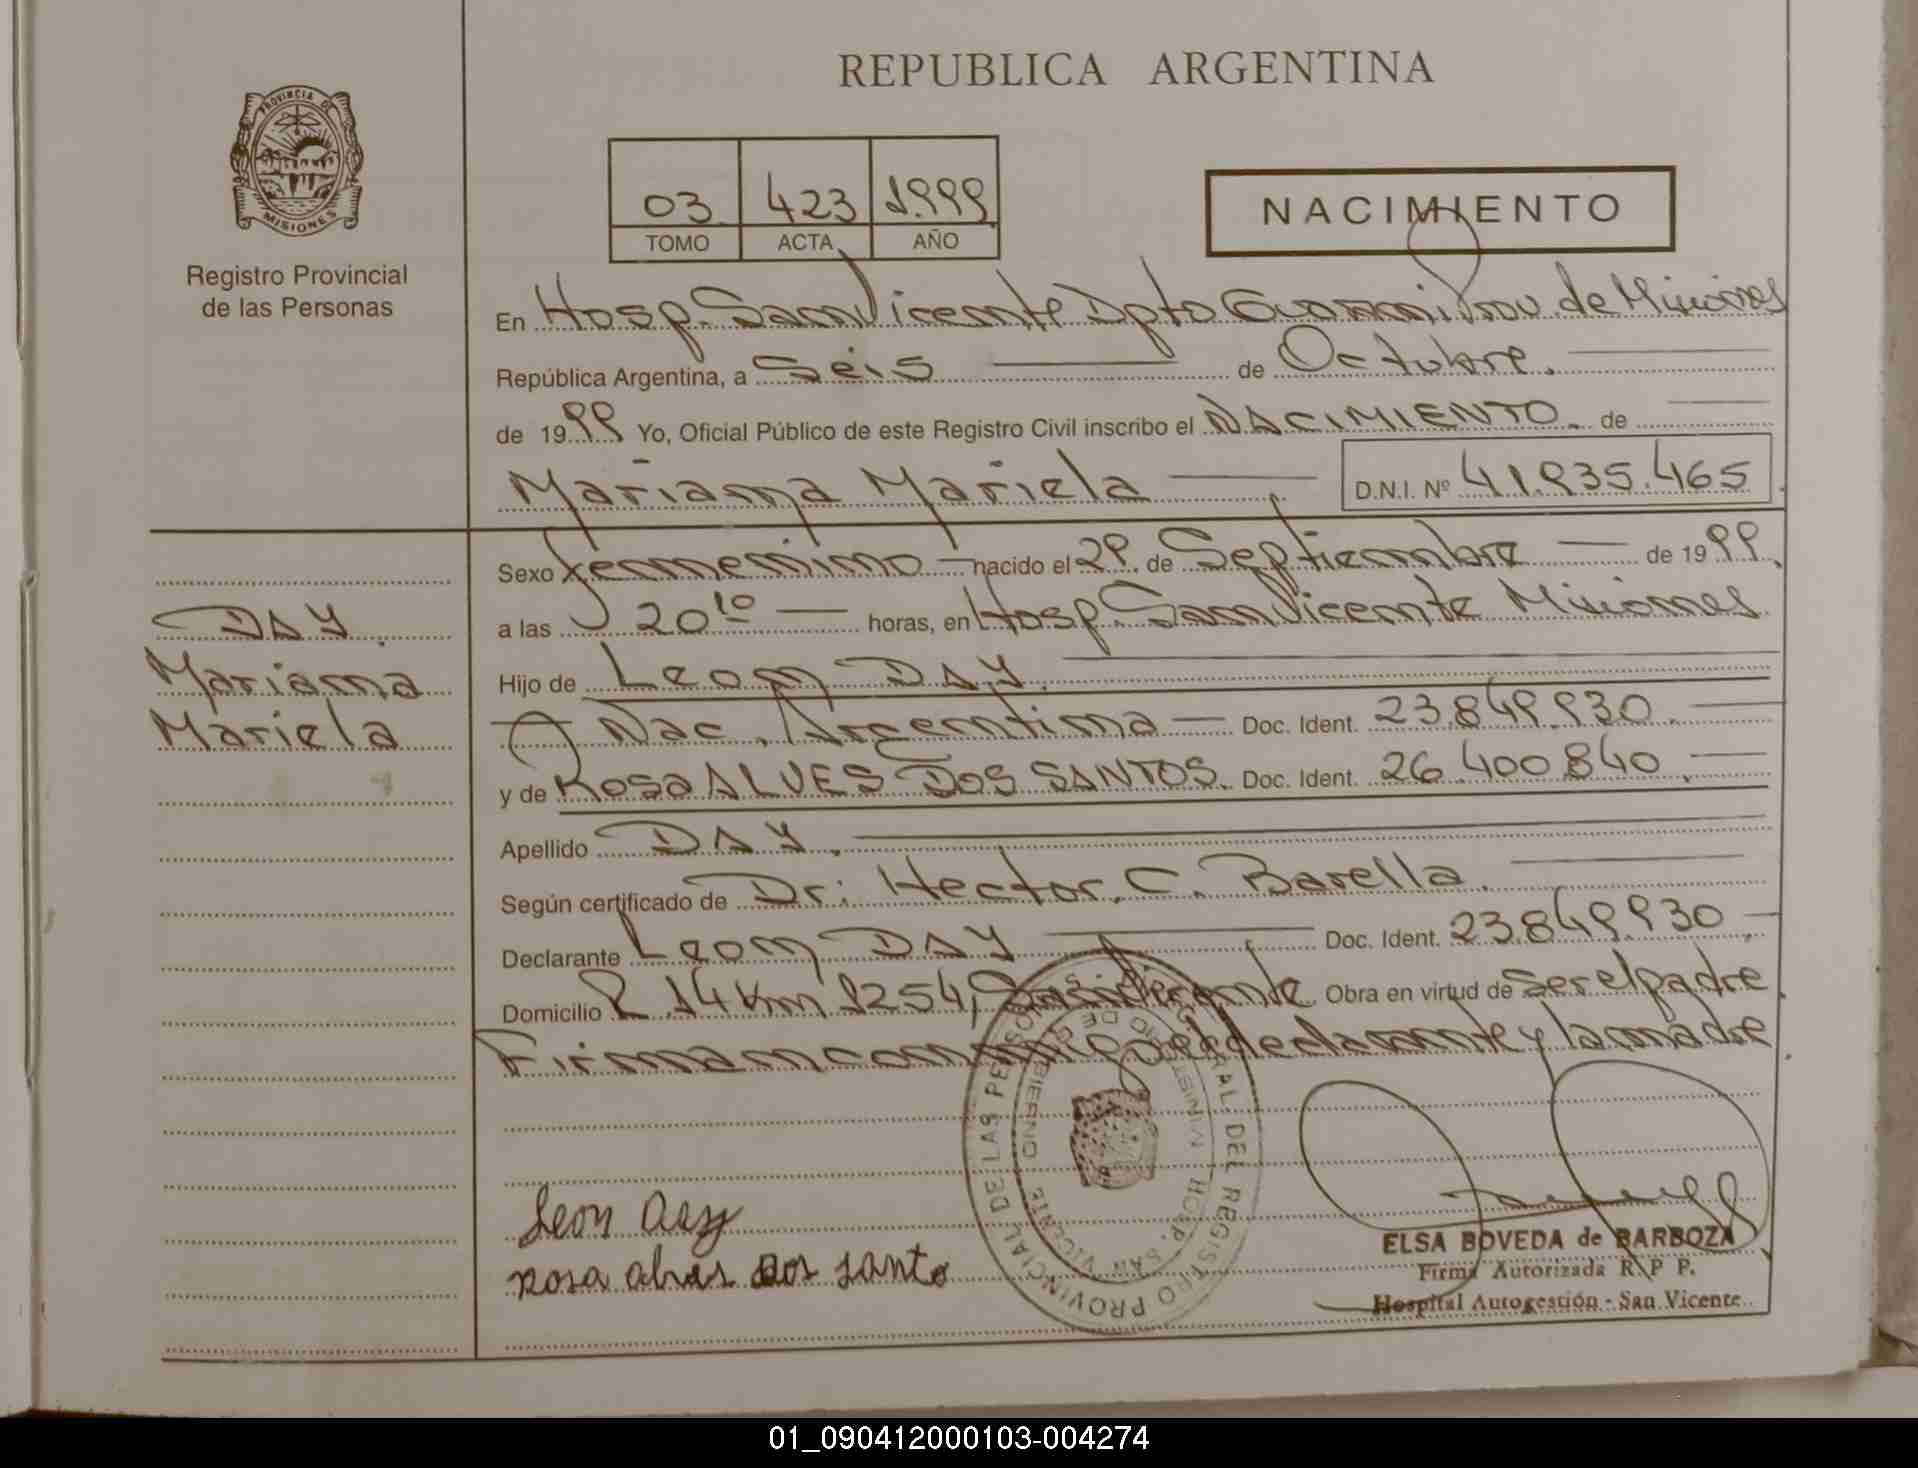 REPUBLICA ARGENTINA
PROVINCIA DE
MISIONES
Registro Provincial
de las Personas
03 423 1.999
TOMO ACTA AÑO
NACIMIENTO
En Hosp. San Vicente Dpto Guarani Prov. de Misiones
República Argentina, a Seis de Octubre.
de 1999 Yo, Oficial Público de este Registro Civil inscribo el NACIMIENTO. de
Mariana Mariela D.N.I. Nº 41.935.465
Sexo femenino nacido el 29 de Septiembre de 1999.
a las 20 10 horas, en Hosp. San Vicente Misiones
DAY.
Mariana
Mariela
Hijo de Leon DAY.
Nac. Argentina Doc. Ident. 23.849.930.
y de Rosa ALVES DOS SANTOS. Doc. Ident. 26.400.840.
Apellido DAY.
Según certificado de Dr: Hector. C. Barella.
Declarante Leon DAY Doc. Ident. 23.849.930
Domicilio R. 14 Km 1254, San Vicente. Obra en virtud de ser el padre.
Firman conmigo el declarante y la madre.
REGISTRO PROVINCIAL DE LAS PERSONAS
HOSP. SAN VICENTE
Leon Day
rosa alves dos santo
ELSA BOVEDA de BARBOZA
Firma Autorizada R. P P.
Hospital Autogestión - San Vicente
01_090412000103-004274